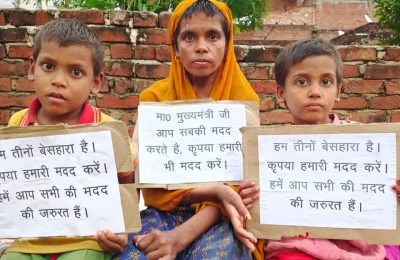 हम तीनों बेसहारा है।
कृपया हमारी मदद करें।
हमें आप सभी की मदद
की जरुरत हैं।
मा0 मुख्यमंत्री जी
आप सबकी मदद
करते है, कृपया हमारी
भी मदद करें।
हम तीनों बेसहारा है।
कृपया हमारी मदद करें।
हमें आप सभी की मदद
की जरुरत हैं।